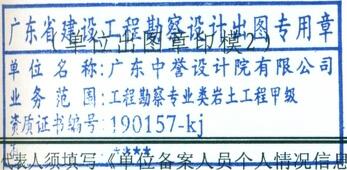 广东省建设工程勘察设计出图专用章
(单位出图章印模2)
单位名称:广东中誉设计院有限公司
业务范围:工程勘察专业类岩土工程甲级
资质证书编号:190157-kj
代表人须填写《单位备案人员个人情况信息